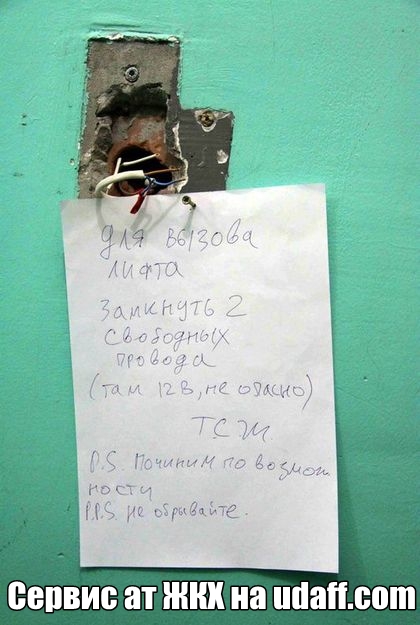 Для вызова
лифта
Замкнуть 2
свободных
провода
(там 12В, не опасно)
Т.С.Ж.
P.S. Починим по возмож-
ности
P.P.S. не обрывайте.
Сервис ат ЖКХ на udaff.com